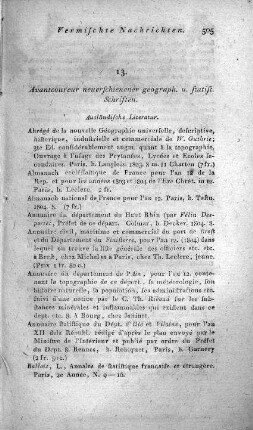 Vermischte Nachrichten. 505
13.
Avantcoureur neuerschienener geograph. u. statist.
Schriften.
Ausländische Literatur.
Abrégé de la nouvelle Géographie universelle, descriptive,
historique, industrielle et commerciale de W. Guthrie;
3e Ed. considérablement augm. quant à la topographie,
Ouvrage à l'usage des Prytanées, Lycées et Ecoles se-
condaires. Paris. b. Langlois. 1803. 8. m. 11 Charten (7 fr.)
Almanach ecclésiastique de France pour l'an 12 de la
Rep. et pour les années 1803 et 1804 de l'Ere Chrét. in 12.
Paris, b. Leclere. 2 fr.
Almanach national de France pour l'an 12. Paris, b. Testu.
1804. 8. (7 fr.)
Annuaire du département du Haut Rhin (par Félix Des-
portes, Préfet de ce départ. Colmar, b. Decker. 1804. 8.
Annuaire civil, maritime et commercial du port de Brest
et du Département du Finistere, pour l'an 12. (1804) dans
lequel on trouve la liste générale des officiers etc. etc.
à Brest, chez Michel et à Paris, chez Th. Leclerc, jeune.
(Prix 1 fr. 80 c.)
Annuaire du département de l'Ain, pour l'an 12. conte-
nant la topographie de ce départ. la météorologie, son
histoire naturelle, la population, les administrations etc.
suivi d'une notice par le C. Th. Riboud sur les sub-
stances minérales et inflammables qui existent dans ce
dépt. etc. 8. à Bourg, chez Janinet.
Annuaire statistique du Dépt. d'Ille et Vilaine, pour l'an
XII de la Républ. rédigé d'après le plan envoyé par le
Ministre de l'Intérieur et publié par ordre du Préfet
du Dépt. 8. Rennes, b. Robiquet, Paris, b. Garnery
(2 fr.
Ballois, L., Annales de statistique française et étrangère.
Paris, 2e Année, N. 9 — 18.